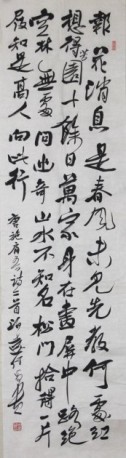 報花消息是春風未見先教何處紅
想得芳園十餘日萬家身在畫屏中路絕
空林無處問幽奇山水不知名松門拾得一片
屐知是高人向此行 唐施肩吾詩二首